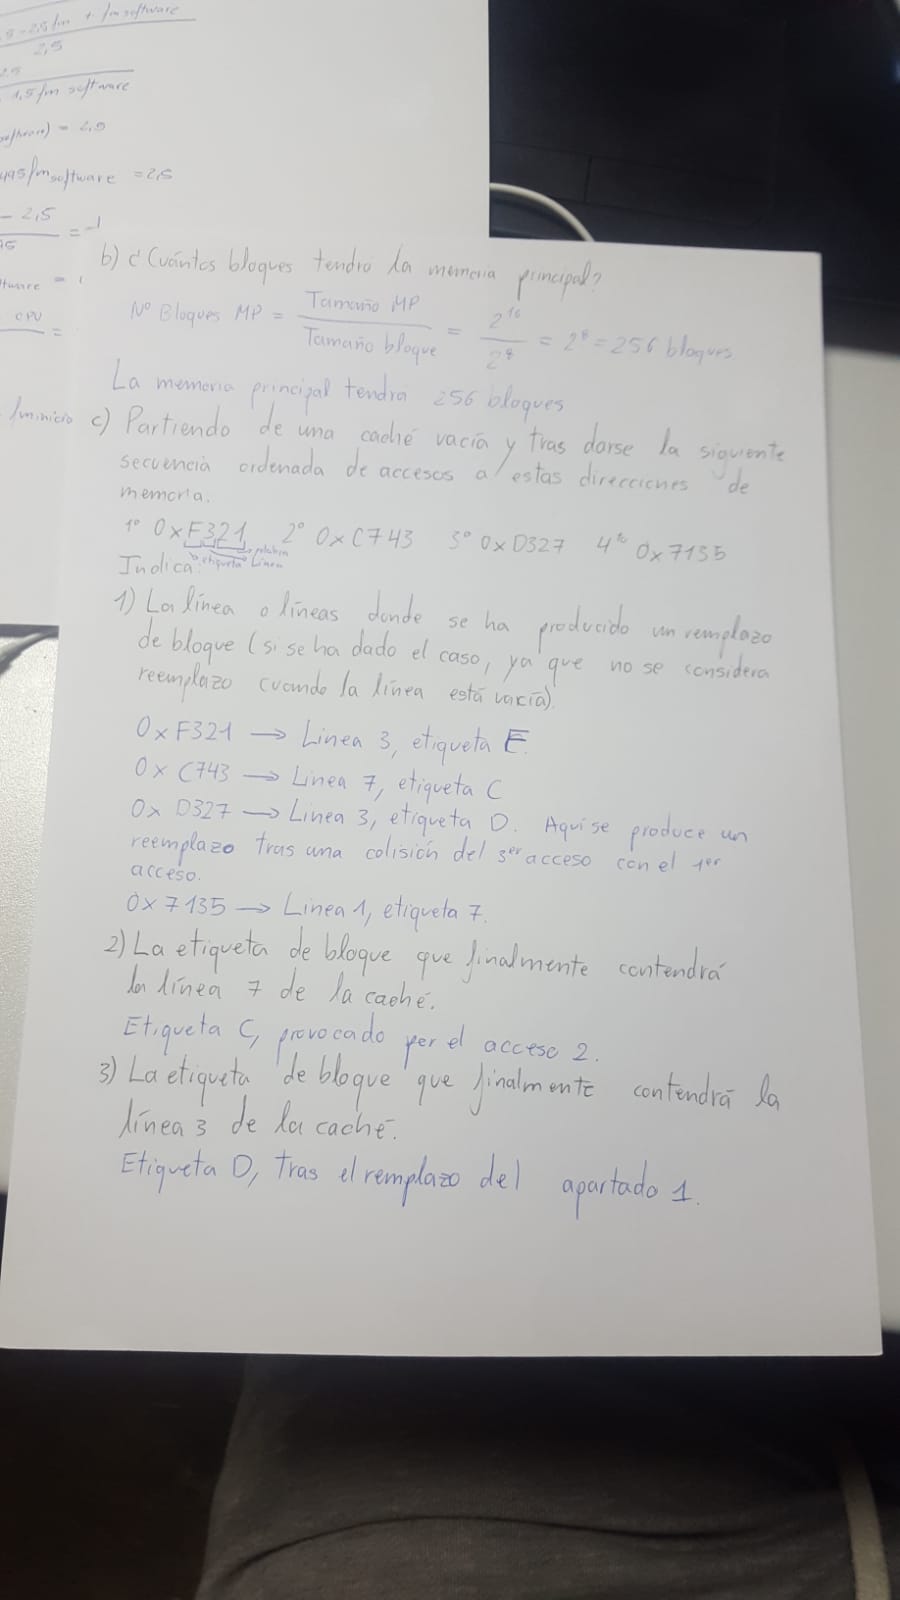 5-2,5fm + fm software
2,5
2,5
1,5fm software
software) = 2,5
495fm software = 2,5
- 2,5
= -1
95
ftware =
CPU
=
fminicio
b) ¿Cuántos bloques tendrá la memoria principal?
Nº Bloques MP = Tamaño MP / Tamaño bloque = 2^16 / 2^8 = 2^8 = 256 bloques
La memoria principal tendrá 256 bloques
c) Partiendo de una caché vacía y tras darse la siguiente
secuencia ordenada de accesos a estas direcciones de
memoria.
1º 0xF321 2º 0xC743 3º 0xD327 4to 0x7135
etiqueta Línea palabra
Indica:
1) La línea o líneas donde se ha producido un remplazo
de bloque (si se ha dado el caso, ya que no se considera
reemplazo cuando la línea está vacía).
0xF321 → Línea 3, etiqueta F.
0x C743 → Línea 7, etiqueta C
0x D327 → Línea 3, etiqueta D. Aquí se produce un
reemplazo tras una colisión del 3er acceso con el 1er
acceso.
0x7135 → Línea 1, etiqueta 7.
2) La etiqueta de bloque que finalmente contendrá
la línea 7 de la caché.
Etiqueta C, provocado por el acceso 2.
3) La etiqueta de bloque que finalmente contendrá la
línea 3 de la caché.
Etiqueta D, tras el remplazo del apartado 1.